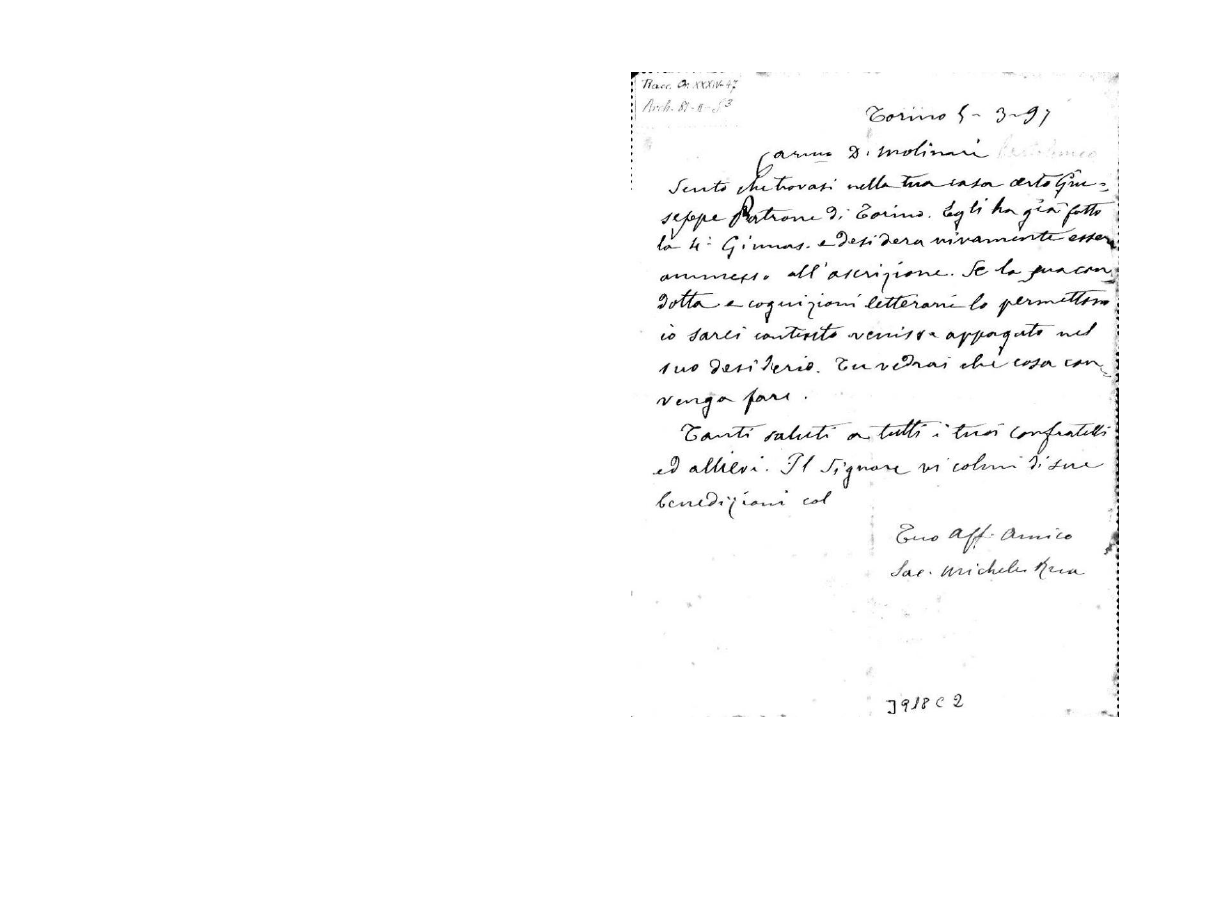 Racc. Or. XXXIV-47
Arch.
Torino 5-3-97
Carmo D. Molinari Bartolomeo
Sento che trovasi nella tua casa certo Giu=
seppe Petrone di Torino. Egli ha già fatto
la 4ª Ginnas. e desidera vivamente essere
ammesso all'ascrizione. Se la sua con
dotta e cognizioni letterarie lo permettono
io sarei contento venisse appagato nel
suo desiderio. Tu vedrai che cosa con-
venga fare.
Tanti saluti a tutti i tuoi confratelli
ed allievi. Il Signore vi colmi di sue
benedizioni col
Tuo Aff. Amico
Sac. Michele Rua
J918 C 2